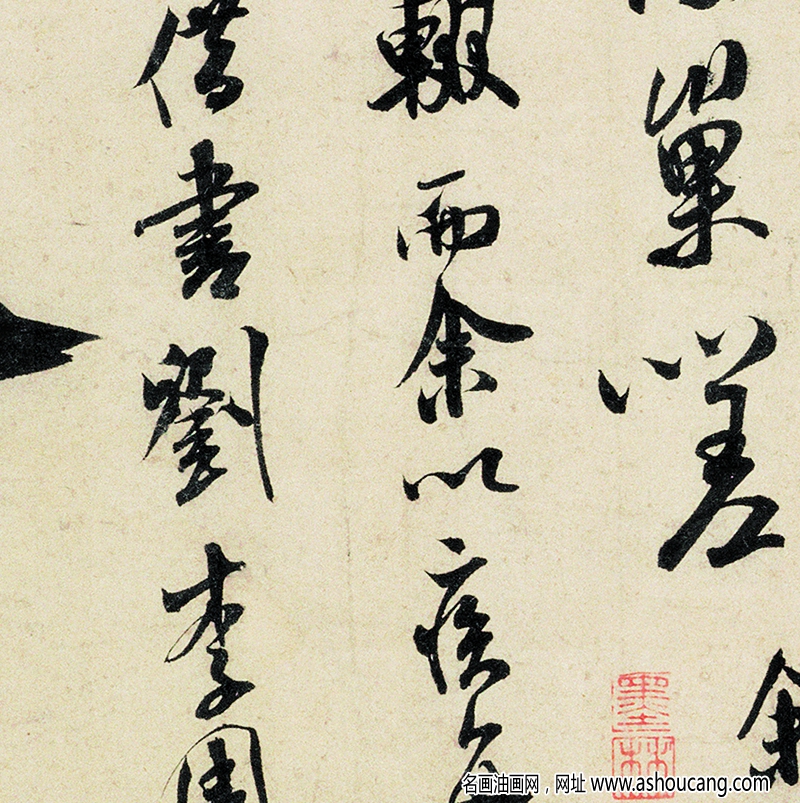 巢嗟
輟而余以疾每
借書劉李周
墨林
名画油画网，网址 www.ashoucang.com